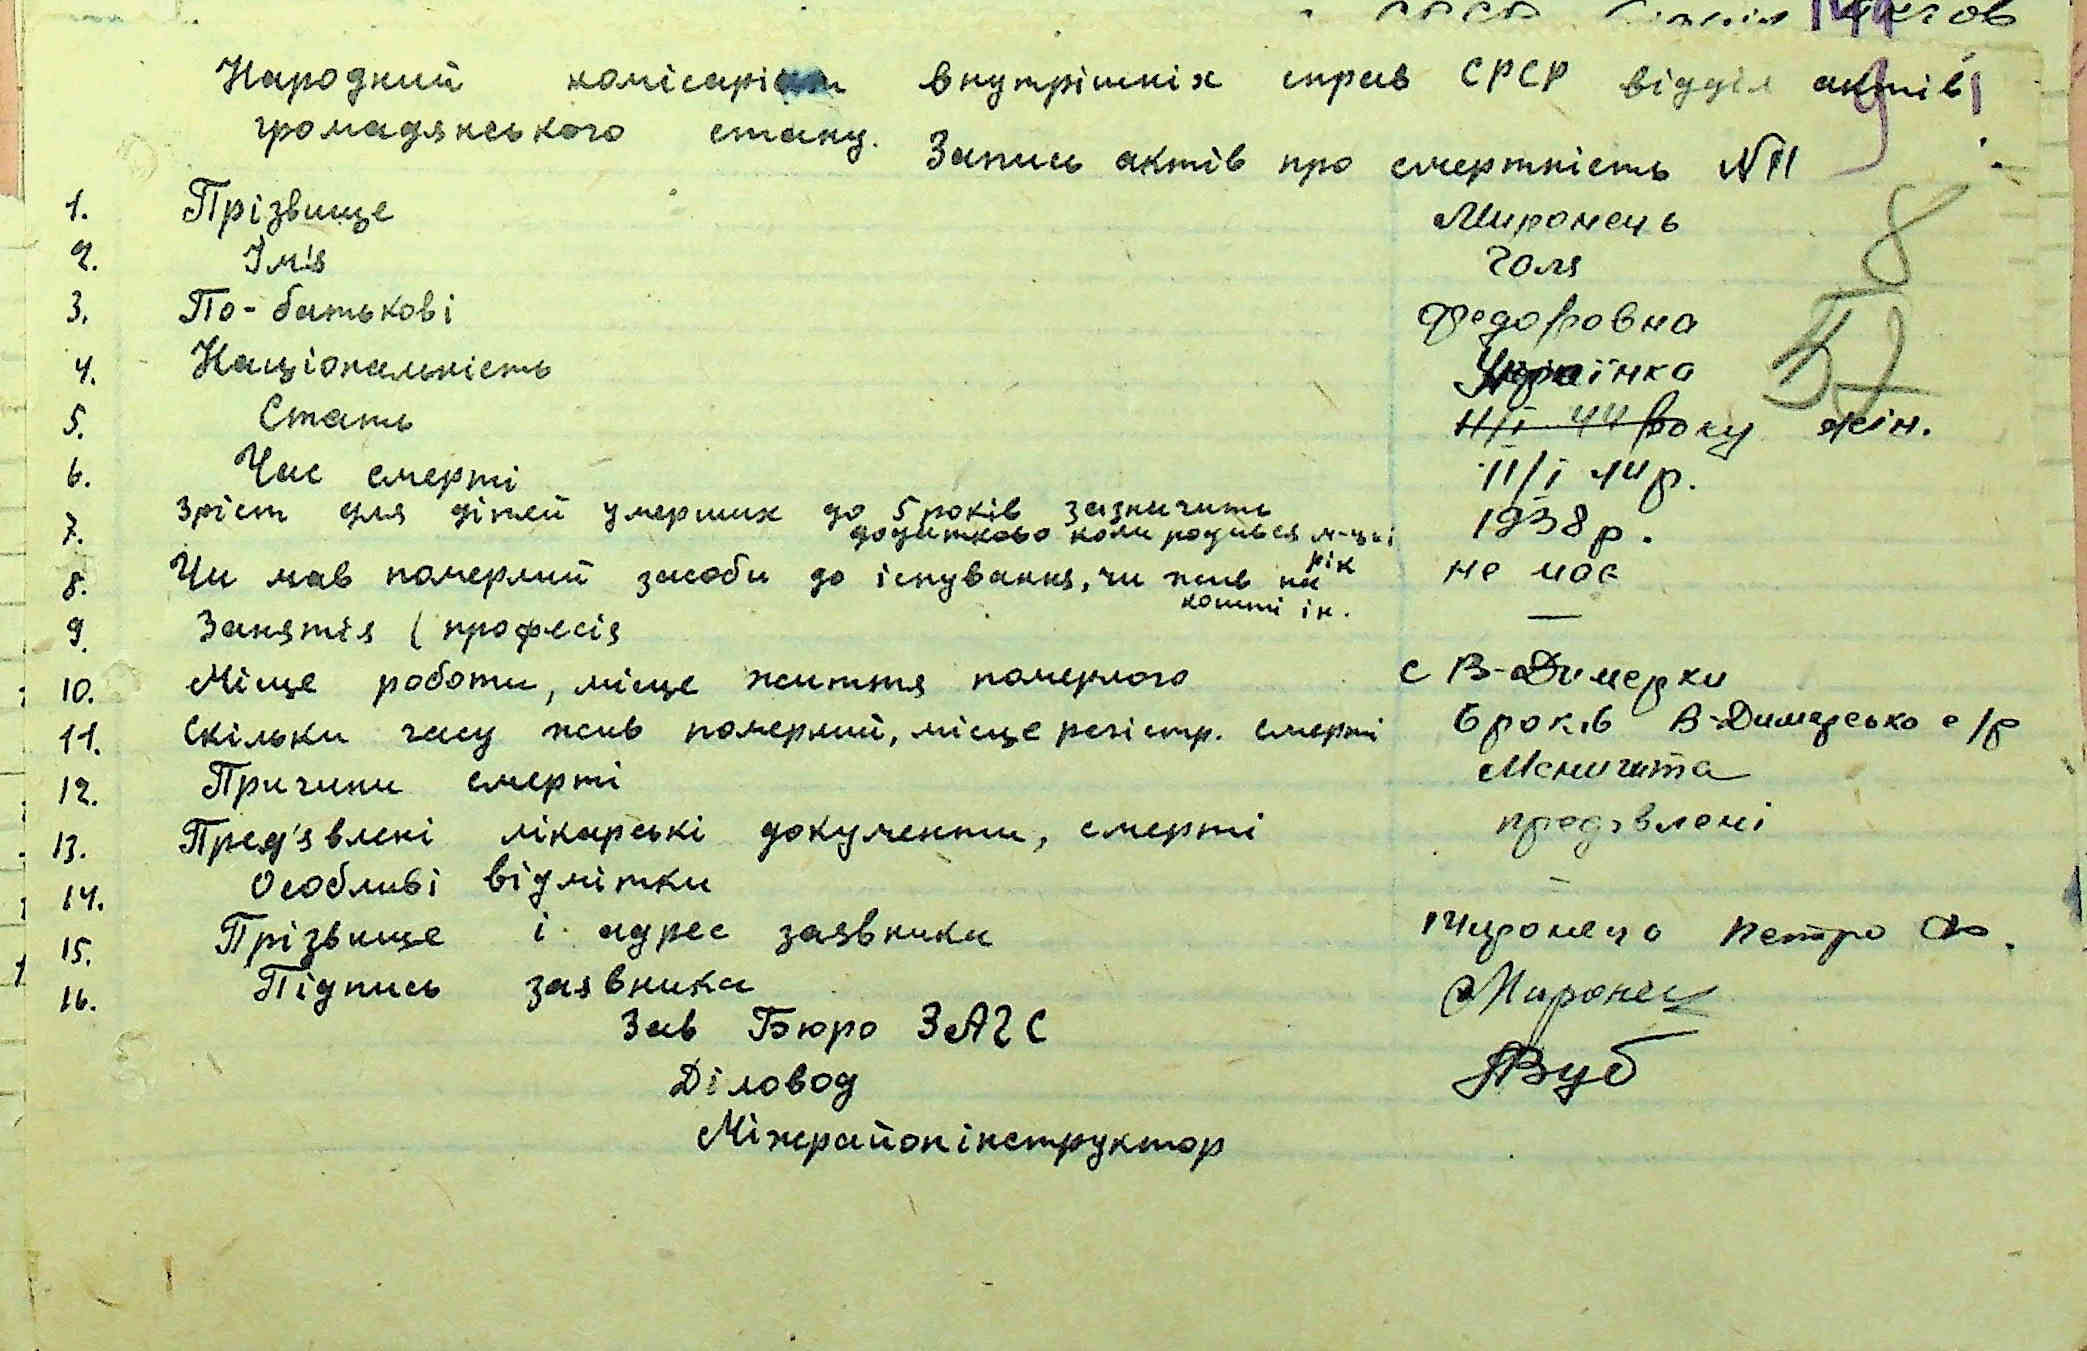 Народний комісаріат внутрішніх справ СРСР відділ актів
громадянського стану. Запись актів про смертність №11
1. Прізвище Миронець
2. Ім'я Голя
3. По-батькові Федоровна
4. Національність Українка
5. Стать 11/I 44 року жін.
6. Час смерті 11/I 44 р.
7. Зріст для дітей умерших до 5 років зазничить 1938 р.
додатково коли родився м-ць і
рік
8. Чи мав померлий засоби до існування, чи жив на не має
кошти ін.
9. Заняття (професія —
10. Місце роботи, місце життя померлого с В-Димерки
11. Скільки часу жив померший, місце регістр. смерті 6 років В-Димерсько с/р
12. Причини смерті Менигита
13. Пред'явлені лікарські документи, смерті предявлені
14. Особливі відмітки –
15. Прізвище і адрес заявника Миронець Петро Ф.
16. Підпись заявника Миронец
Зав Бюро ЗАГС
Діловод
Міжрайонінструктор
8